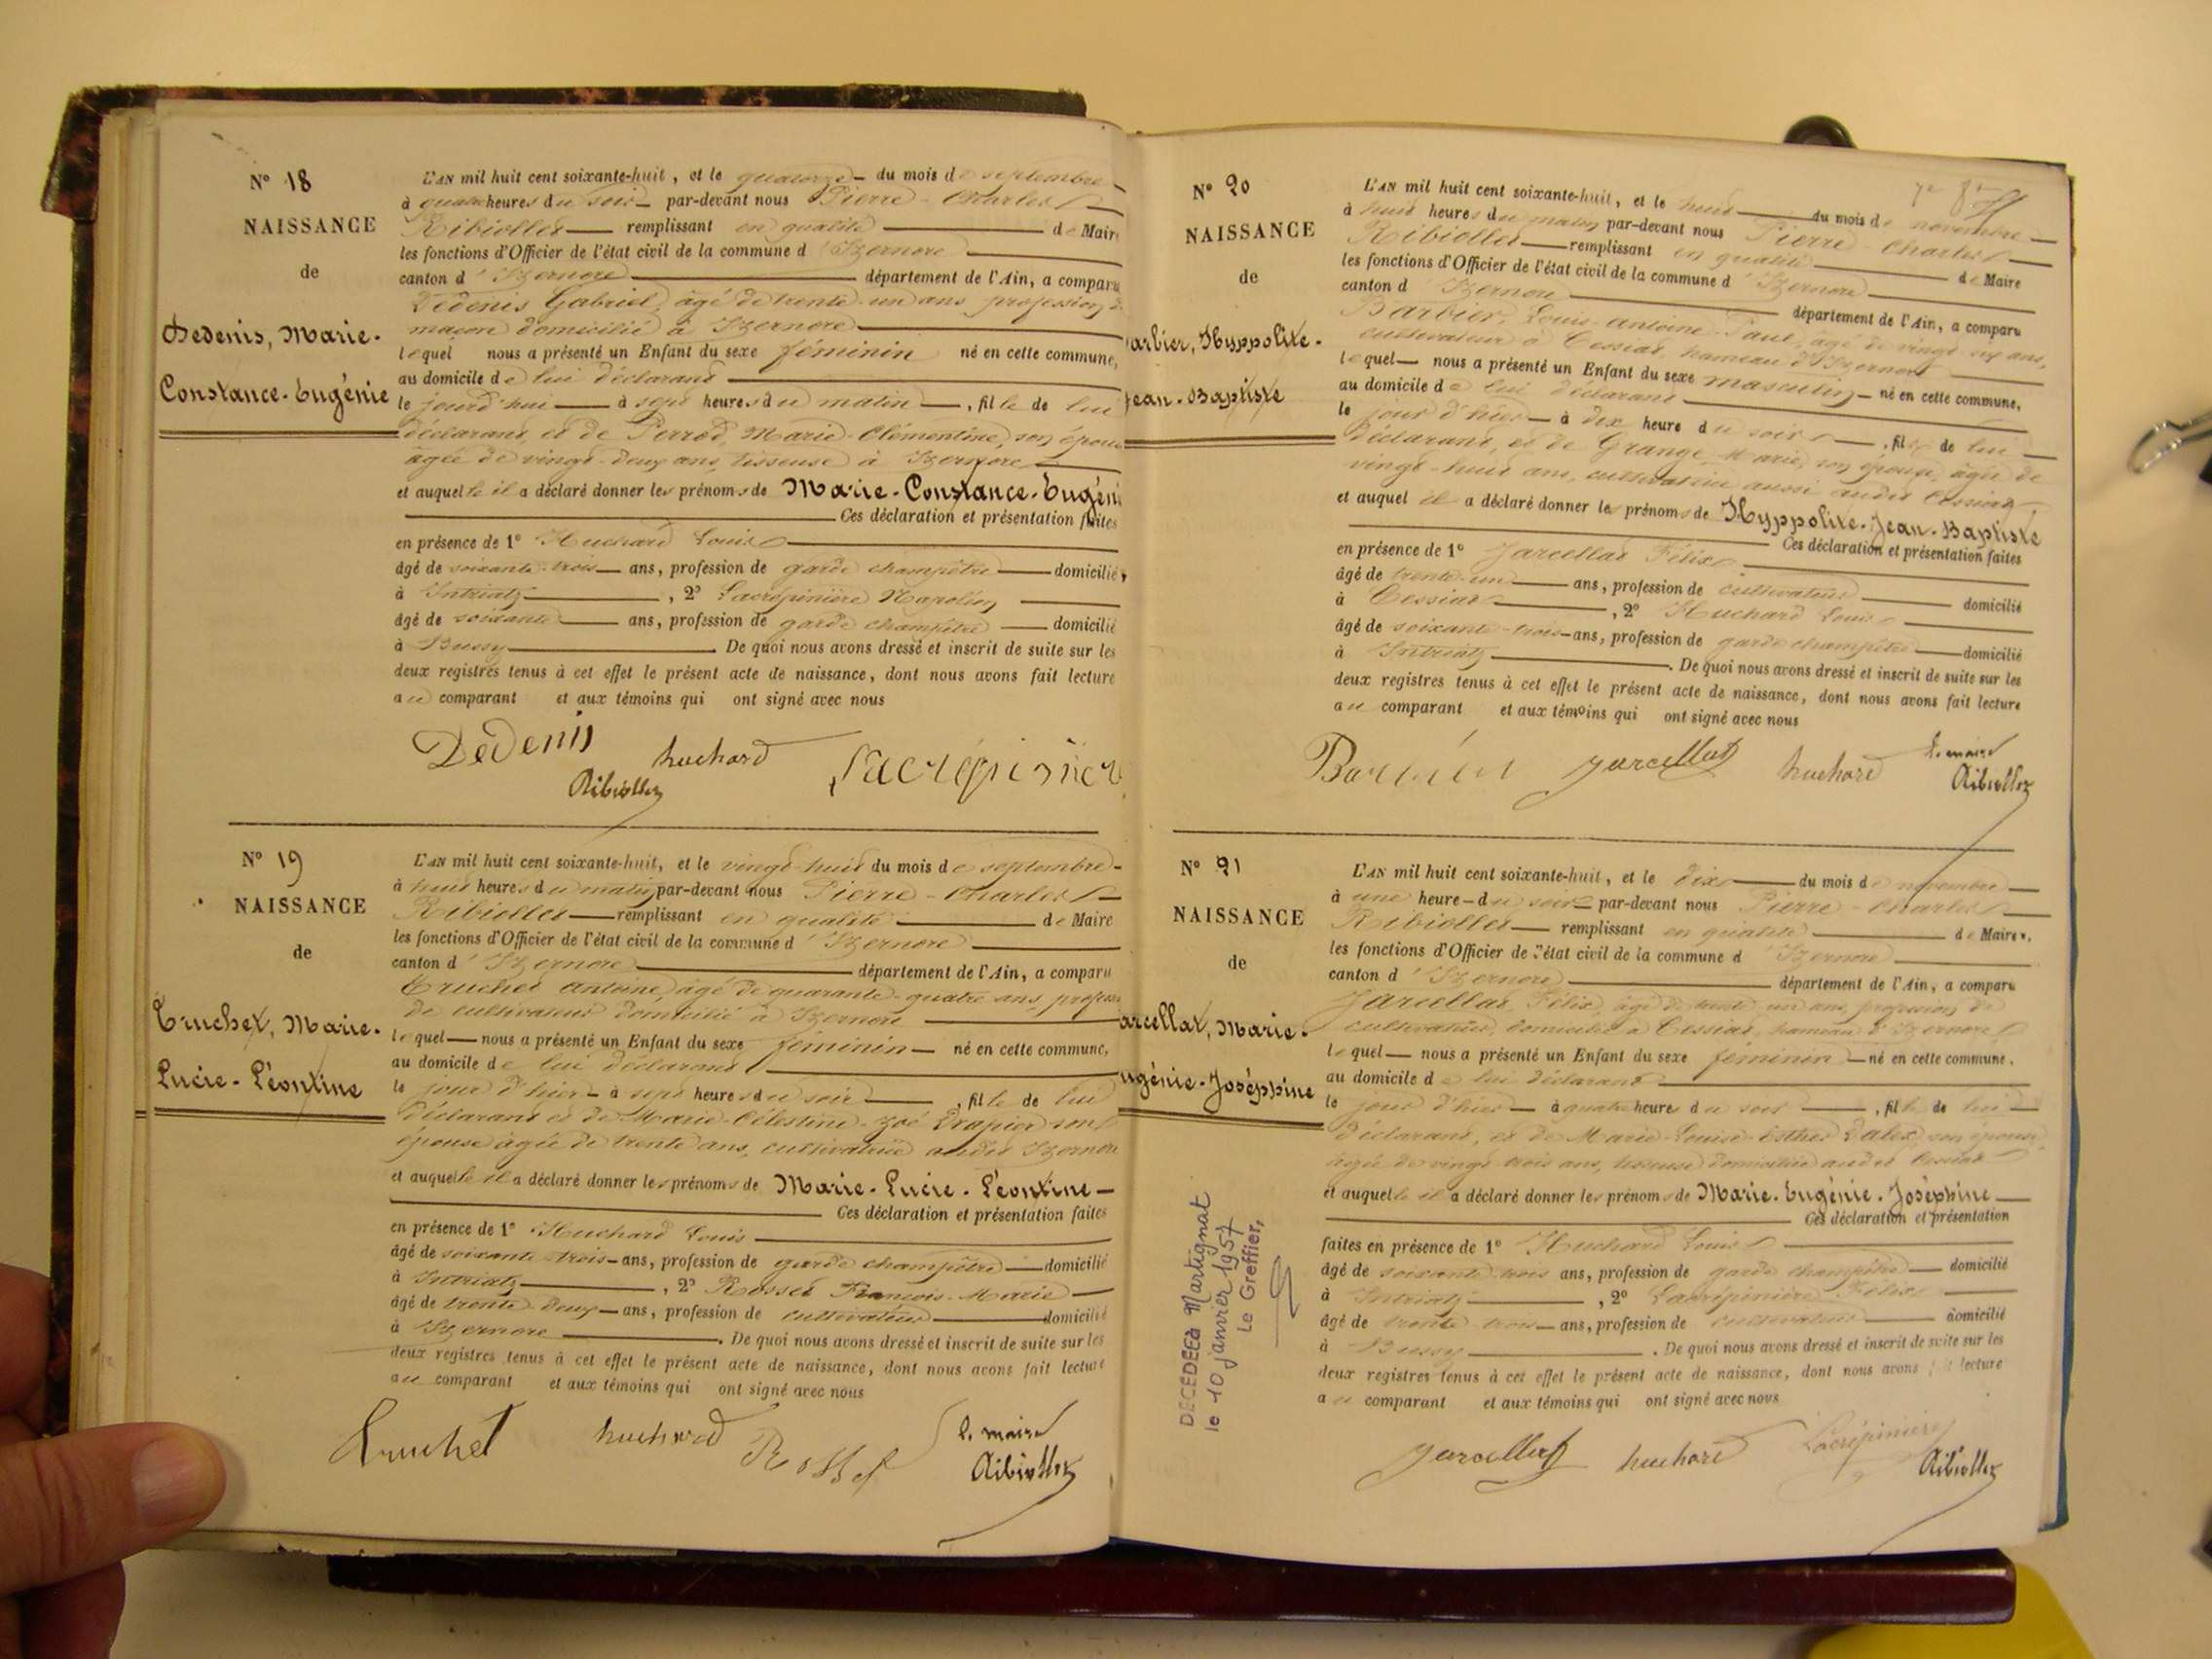 N° 18
NAISSANCE
de
Dedenis, Marie-
Constance-Eugénie
L'AN mil huit cent soixante-huit, et le quatorze du mois de septembre
à quatre heures du soir par-devant nous Pierre-Charles
Ribiollet remplissant en qualité de Maire
les fonctions d'Officier de l'état civil de la commune d'Izernore
canton d'Izernore département de l'Ain, a comparu
Dedenis Gabriel, âgé de trente-un ans profession de
maçon domicilié à Izernore
lequel nous a présenté un Enfant du sexe féminin né en cette commune,
au domicile de lui déclarant
le jourd'hui à sept heures du matin, fille de lui
déclarant, et de Perrod, Marie-Clémentine, son épouse
agée de vingt-deux ans, tisseuse à Izernore
et auquelle il a déclaré donner les prénoms de Marie-Constance-Eugéni
Ces déclaration et présentation faites
en présence de 1° Huchard Louis
âgé de soixante-trois ans, profession de garde champêtre domicilié
à Intriatz, 2° Lacrépinière Napoléon
âgé de soixante ans, profession de garde champêtre domicilié
à Bussy De quoi nous avons dressé et inscrit de suite sur les
deux registres tenus à cet effet le présent acte de naissance, dont nous avons fait lecture
au comparant et aux témoins qui ont signé avec nous
Dedenis huchard Lacrépinièr
Ribiollet
N° 19
NAISSANCE
de
Truchet, Marie-
Lucie-Léontine
L'AN mil huit cent soixante-huit, et le vingt-huit du mois de septembre
à huit heures du matin par-devant nous Pierre-Charles
Ribiollet remplissant en qualité de Maire
les fonctions d'Officier de l'état civil de la commune d'Izernore
canton d'Izernore département de l'Ain, a comparu
Truchet Antoine, âgé de quarante-quatre ans, profess
de cultivateur domicilié à Izernore
lequel nous a présenté un Enfant du sexe féminin né en cette commune,
au domicile de lui déclarant
le jour d'hier à sept heures du soir, fille de lui
déclarant et de Marie-Célestine-Zoé Drapier son
épouse âgée de trente ans, cultivatrice audit Izernore
et auquelle il a déclaré donner les prénoms de Marie-Lucie-Léontine
Ces déclaration et présentation faites
en présence de 1° Huchard Louis
âgé de soixante-trois ans, profession de garde champêtre domicilié
à Intriatz, 2° Rosset François-Marie
âgé de trente-deux ans, profession de cultivateur domicilié
à Izernore. De quoi nous avons dressé et inscrit de suite sur les
deux registres tenus à cet effet le présent acte de naissance, dont nous avons fait lecture
au comparant et aux témoins qui ont signé avec nous
Truchet huchard Rosset le maire
Ribiollet
N° 20
NAISSANCE
de
arbier, Hyppolite-
Jean-Baptiste
L'AN mil huit cent soixante-huit, et le huit du mois de novembre
à huit heures du matin par-devant nous Pierre-Charles
Ribiollet remplissant en qualité de Maire
les fonctions d'Officier de l'état civil de la commune d'Izernore
canton d'Izernore département de l'Ain, a comparu
Barbier, Louis-Antoine-Paul, âgé de vingt six ans,
cultivateur à Cessiat, hameau d'Izernore
lequel nous a présenté un Enfant du sexe masculin né en cette commune,
au domicile de lui déclarant
le jour d'hier à dix heure du soir, fils de lui
déclarant, et de Grange Marie, son épouse, âgée de
vingt-huit ans, cultivatrice aussi audit Cessiat
et auquel il a déclaré donner les prénoms de Hyppolite-Jean-Baptiste
Ces déclaration et présentation faites
en présence de 1° Jarcellat Félix
âgé de trente-un ans, profession de cultivateur domicilié
à Cessiat, 2° Huchard Louis
âgé de soixante-trois ans, profession de garde champêtre domicilié
à Intriatz. De quoi nous avons dressé et inscrit de suite sur les
deux registres tenus à cet effet le présent acte de naissance, dont nous avons fait lecture
au comparant et aux témoins qui ont signé avec nous
Barbier Jarcellat huchard le maire
Ribiollet
N° 21
NAISSANCE
de
arcellat, Marie-
ugénie-Joséphine
L'AN mil huit cent soixante-huit, et le dix du mois de novembre
à une heure du soir par-devant nous Pierre-Charles
Ribiollet remplissant en qualité de Maire.
les fonctions d'Officier de l'état civil de la commune d'Izernore
canton d'Izernore département de l'Ain, a comparu
Jarcellat, Félix, âgé de trente-un ans, profession de
cultivateur, domicilié à Cessiat, hameau d'Izernore
lequel nous a présenté un Enfant du sexe féminin né en cette commune,
au domicile de lui déclarant
le jour d'hier à quatre heure du soir, fille de lui
déclarant, et de Marie-Louise-Esther Dalex son épouse
âgée de vingt-trois ans, tisseuse domiciliée audit Cessiat
et auquelle il a déclaré donner les prénoms de Marie-Eugénie-Joséphine
Ces déclaration et présentation
faites en présence de 1° Huchard Louis
âgé de soixante-trois ans, profession de garde champêtre domicilié
à Intriatz, 2° Lacrépinière Félix
âgé de trente-trois ans, profession de cultivateur domicilié
à Bussy. De quoi nous avons dressé et inscrit de suite sur les
deux registres tenus à cet effet le présent acte de naissance, dont nous avons fait lecture
au comparant et aux témoins qui ont signé avec nous
Jarcellat huchard Lacrépinière
Ribiollet
DECEDEE à Martignat
le 10 janvier 1957
Le Greffier,